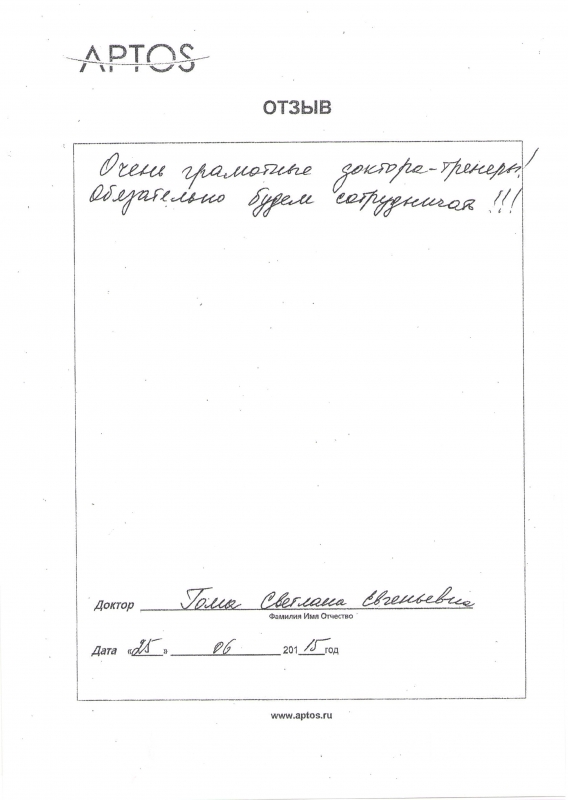 APTOS
ОТЗЫВ
Очень грамотные доктора-тренеры!
Обязательно будем сотрудничать !!!
Доктор Светлана Евгеньевна
Фамилия Имя Отчество
Дата «25» 06 2015 год
www.aptos.ru